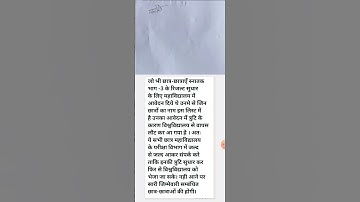 जो भी छात्र-छात्राएँ स्नातक
भाग -3 के रिजल्ट सुधार
के लिए महाविद्यालय में
आवेदन दिये थे उनमे से जिन
छात्रों का नाम इस लिस्ट में
है उनका आवेदन में त्रुटि के
कारण विश्वविद्यालय से वापस
लौट कर आ गया है । अतः
ये सभी छात्र महाविद्यालय
के परीक्षा विभाग में जल्द
से जल्द आकर संपर्क करें
ताकि इनकी त्रुटि सुधार कर
फिर से विश्वविद्यालय को
भेजा जा सके। नही आने पर
सारी जिम्मेवारी सम्बंधित
छात्र-छात्राओं की होगी।